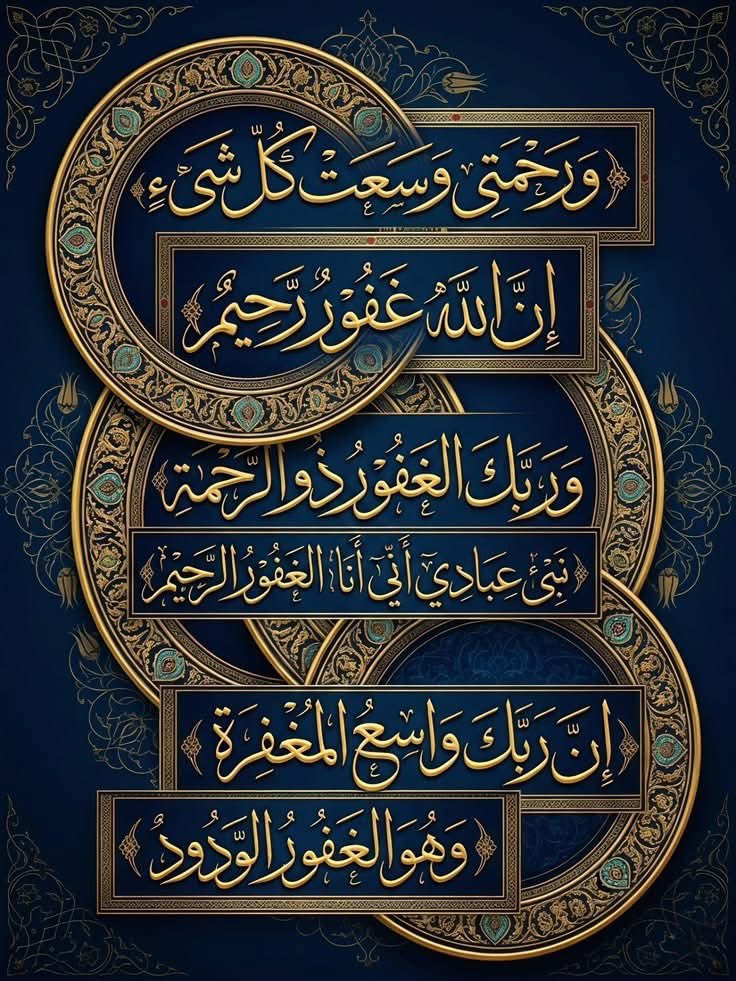 وَرَحْمَتِى وَسَعَتْ كُلَّ شَىْءٍ
إِنَّ اللَّهَ غَفُوْرٌ رَّحِيْمٌ
وَرَبُّكَ الْغَفُوْرُ ذُو الرَّحْمَةِ
نَبِّئْ عِبَادِيٓ أَنِّيٓ أَنَا الْغَفُوْرُ الرَّحِيْمُ
إِنَّ رَبَّكَ وَاسِعُ الْمُغْفِرَةِ
وَهُوَ الْغَفُورُ الْوَدُودُ